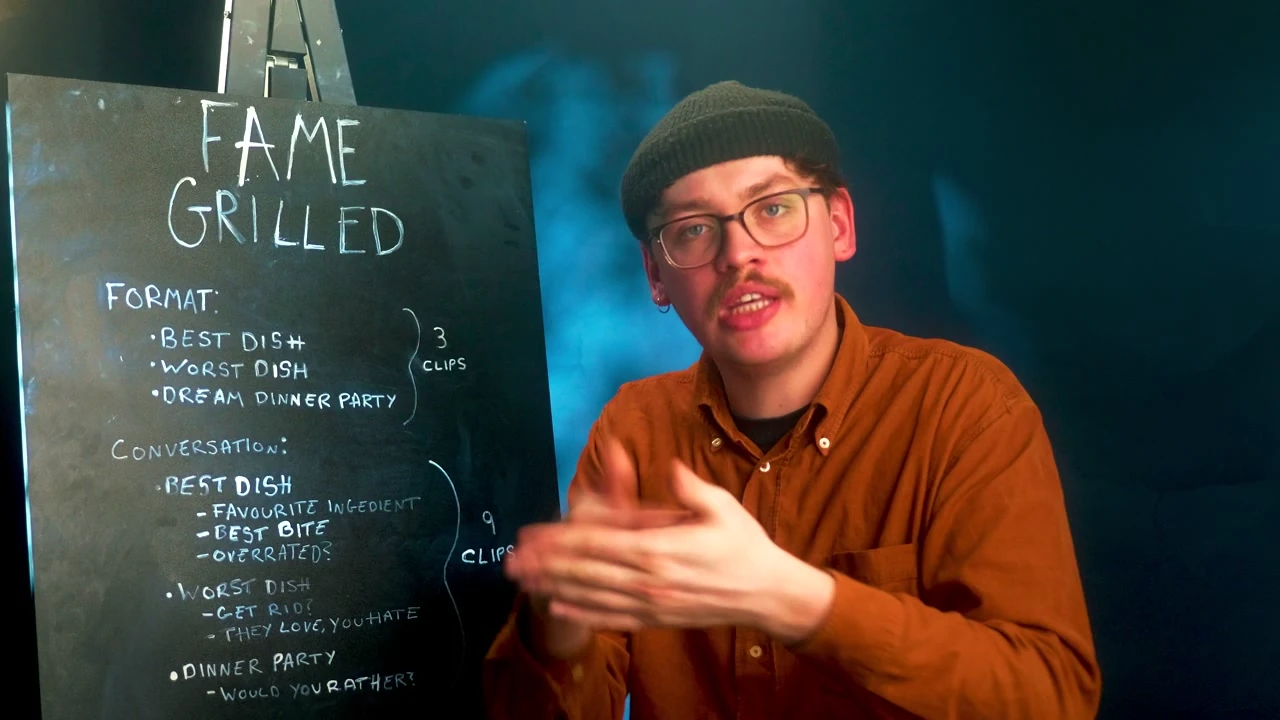 FAME
GRILLED
FORMAT:
•BEST DISH
•WORST DISH
•DREAM DINNER PARTY
3
CLIPS
CONVERSATION:
•BEST DISH
-FAVOURITE INGEDIENT
-BEST BITE
-OVERRATED?
9
CLIPS
•WORST DISH
-GET RID?
-THEY LOVE, YOU HATE
•DINNER PARTY
-WOULD YOU RATHER?